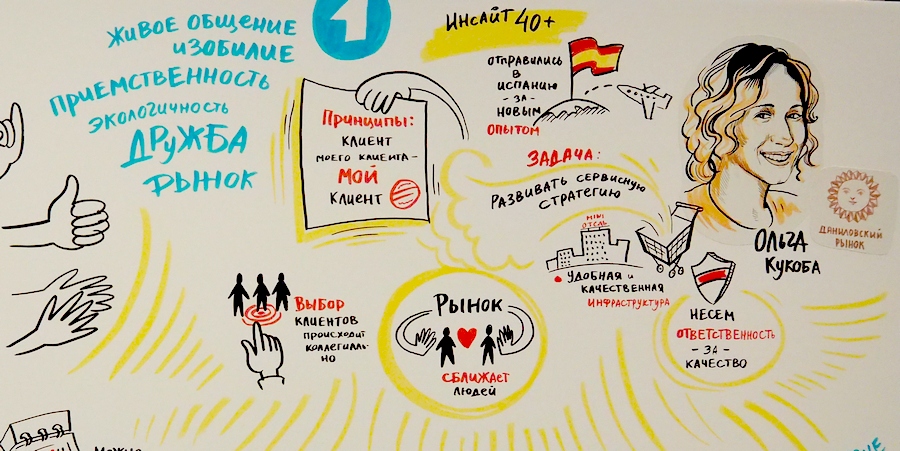 ЖИВОЕ ОБЩЕНИЕ
ИЗОБИЛИЕ
ПРИЕМСТВЕННОСТЬ
ЭКОЛОГИЧНОСТЬ
ДРУЖБА
РЫНОК
1
Принципы:
КЛИЕНТ
МОЕГО КЛИЕНТА -
МОЙ
КЛИЕНТ
ИНСАЙТ 40+
ОТПРАВИЛИСЬ
В
ИСПАНИЮ
- ЗА -
НОВЫМ
ОПЫТОМ
ЗАДАЧА:
РАЗВИВАТЬ СЕРВИСНУЮ
СТРАТЕГИЮ
MINI
ОТЕЛЬ
УДОБНАЯ И
КАЧЕСТВЕННАЯ
ИНФРАСТРУКТУРА
ОЛЬГА
КУКОБА
ДАНИЛОВСКИЙ
РЫНОК
НЕСЕМ
ОТВЕТСТВЕННОСТЬ
- ЗА -
КАЧЕСТВО
ВЫБОР
КЛИЕНТОВ
ПРОИСХОДИТ
КОЛЛЕГИАЛЬ-
НО
РЫНОК
СБЛИЖАЕТ
ЛЮДЕЙ